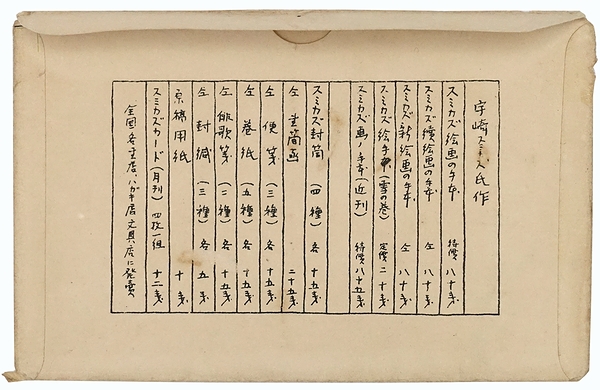 宇崎スミカズ氏作
スミカズ絵画の手本 特價 八十戔
スミカズ續絵画の手本 仝 八十戔
スミカズ新絵画の手本 仝 八十戔
スミカズ絵手本(雪の巻) 定價 二十戔
スミカズ画ノ手本(近刊) 特價 八十五戔
スミカズ封筒 (四種) 各 十五戔
仝 書簡函 二十五戔
仝 便箋 (三種) 各 十五戔
仝 巻紙 (五種) 各 十五戔
仝 俳歌箋 (二種) 各 十五戔
仝 封緘 (三種) 各 五戔
原稿用紙 十戔
スミカズカード(月刊) 四枚一組 十二戔
全國各書店、ハガキ店文具店に発賣す